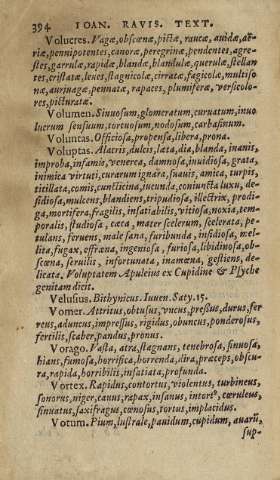 394 IOAN. RAVIS. TEXT.
Volucres. Vagæ, obscœnæ, pictæ, raucæ, auidæ, aë-
riæ, pennipotentes, canoræ, peregrinæ, pendentes, agre-
stes, garrulæ, rapidæ, blandæ, blandulæ, querulæ, stellan
tes, cristatæ, leues, stagnicolæ, cirratæ, fagicolæ, multiso
næ, aurinagæ, pennatæ, rapaces, plumiferæ, versicolo-
res, picturatæ.
Volumen. Sinuosum, glomeratum, curuatum, inuo
lucrum sensuum, tortuosum, nodosum, carbasinum.
Voluntas. Officiosa, propensa, libera, prona.
Voluptas. Alacris, dulcis, læta, dia, blanda, inanis,
improba, infamis, venerea, damnosa, inuidiosa, grata,
inimica virtuti, curarum ignara, suauis, amica, turpis,
titillata, comis, cuncticina, iucunda, coniuncta luxu, de-
sidiosa, mulcens, blandiens, tripudiosa, illectrix, prodi-
ga, mortifera, fragilis, insatiabilis, vitiosa, noxia, tem-
poralis, studiosa, cæca, mater scelerum, scelerata, pe-
tulans, feruens, male sana, furibunda, insidiosa, mel-
lita, fugax, offræna, ingeniosa, furiosa, libidinosa, ob-
scœna, seruilis, infortunata, inamœna, gestiens, de-
licata, Voluptatem Apuleius ex Cupidine & Psyche
genitam dicit.
Velusius. Bithynicus. Iuuen. Saty. 15.
Vomer. Attritus, obtusus, vncus, pressus, durus, fer
reus, aduncus, impressus, rigidus, obuncus, ponderosus,
fertilis, scaber, pandus, pronus.
Vorago. Vasta, atra, stagnans, tenebrosa, sinuosa,
hians, fumosa, horrifica, horrenda, dira, præceps, obscu-
ra, rapida, horribilis, insatiata, profunda.
Vortex. Rapidus, contortus, violentus, turbineus,
sonorus, niger, cauus, rapax, insanus, intortus, cœruleus,
sinuatus, saxifragus, cœnosus, tortus, implacidus.
Votum. Pium, lustrale, pauidum, cupidum, auarū,
sup-